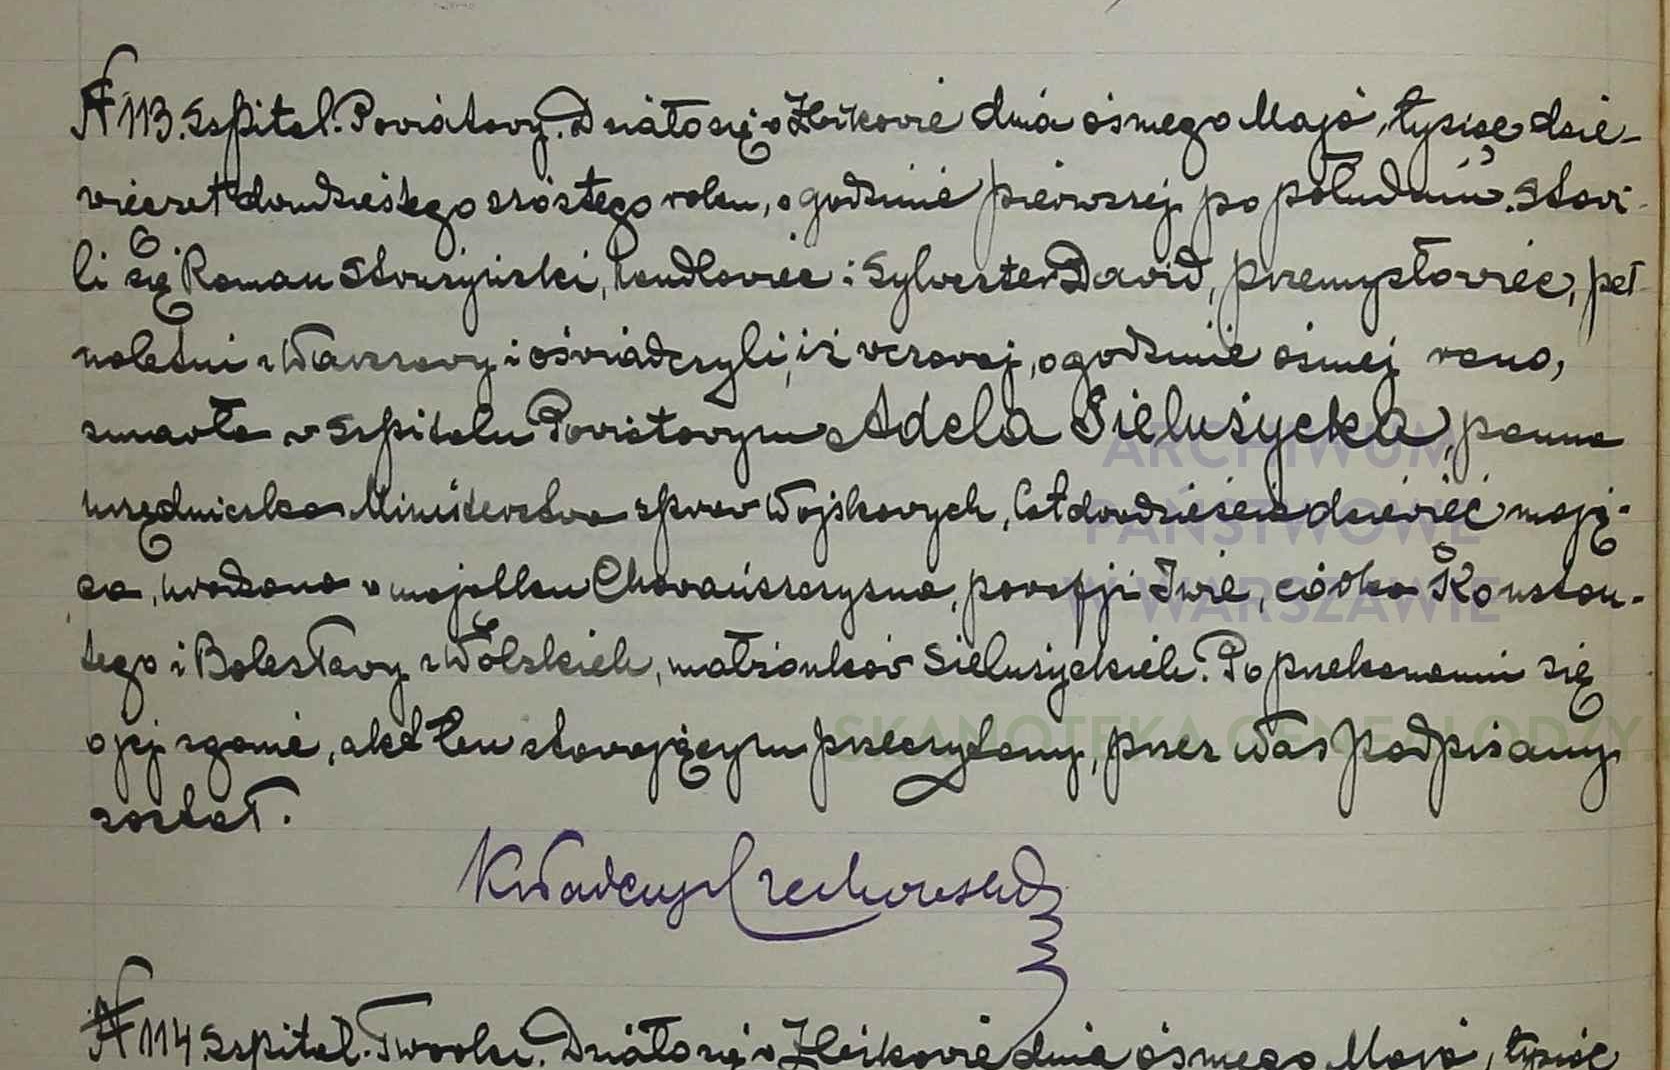 № 113. Szpital. Powiatowy. Działo się w Żbikowie dnia ósmego Maja, tysiąc dzie-
więćset dwudziestego szóstego roku, o godzinie pierwszej po południu. Stawi-
li się Roman handlowiec i Sylwester Dawid, przemysłowiec, peł-
noletni z Warszawy i oświadczyli, iż wczoraj, o godzinie ósmej rano,
zmarła w Szpitalu Powiatowym Adela Sielużycka, panna
urzędniczka Ministerstwa spraw Wojskowych, lat dwadzieścia dziewięć mają-
ca, urodzona w majątku Chorąńszczyzna, parafji Iwie, córka Konstan-
tego i Bolesławy z Wolskich, małżonków Sielużyckich. Po przekonaniu się
o jej zgonie, akt ten stawającym przeczytany, przez Nas podpisany
został.
ARCHIWUM
PAŃSTWOWE
W WARSZAWIE
SKANOTEKA GENEALODZY
№ 114. Szpital. Tworki. Działo się w Żbikowie dnia ósmego Maja, tysiąc